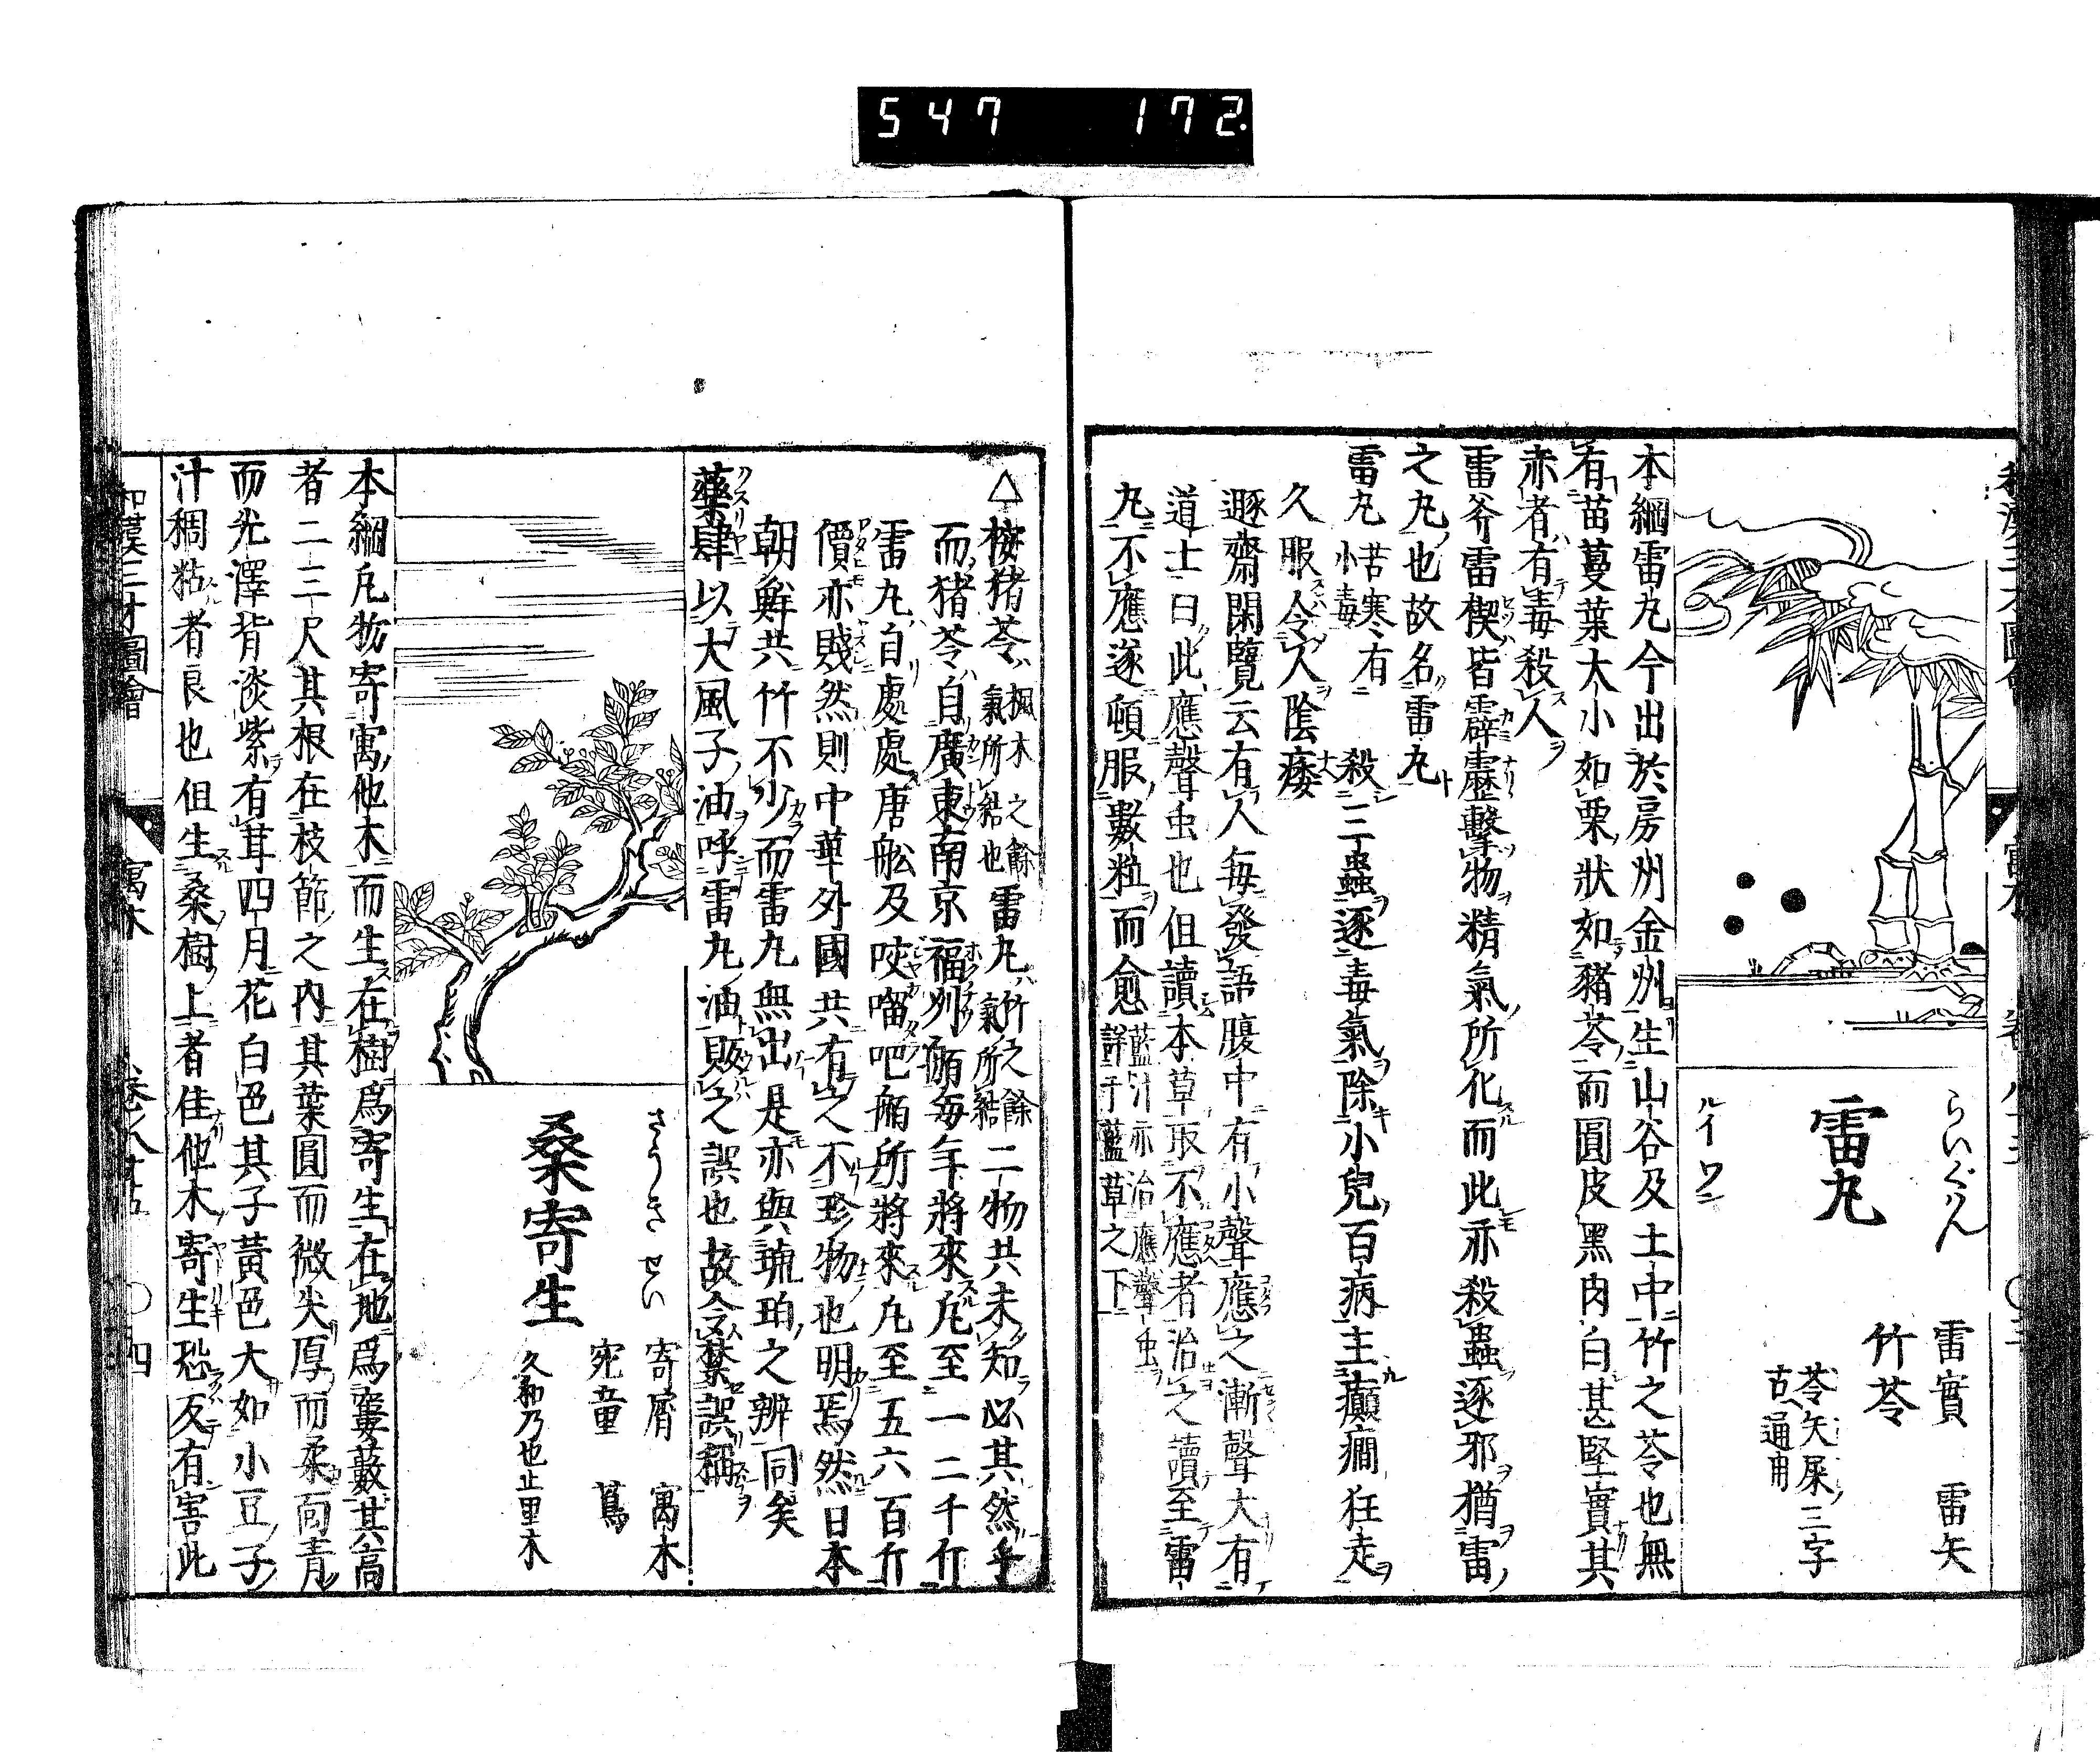 547 172
らいぐはん
雷丸
ルイワン
雷實 雷矢
竹苓
苓矢屎三字
古通用
本綱雷丸今出於房州金州生山谷及土中竹之苓也無
有苗蔓葉大小如栗狀如豬苓而圓皮黑肉白甚堅實其
赤者有毒殺人
雷斧雷楔皆霹靂擊物精氣所化而此亦殺蟲逐邪猶雷
之丸也故名雷丸
雷丸 苦寒有小毒 殺三蟲逐毒氣除小兒百病主癲癇狂走
久服令人陰痿
遯齋閑覽云有人每發語腹中有小聲應之漸聲大有
道士曰此應聲虫也但讀本草取不應者治之讀至雷
丸不應遂頓服數粒而愈 藍汁亦治應聲虫詳于藍草之下
△按猪苓 楓木之餘氣所結也 雷丸 竹之餘氣所結 二物共未知必其然乎
而猪苓自廣東南京福州舶每年將來凡至一二千斤
雷丸自處處唐舩及咬𠺕吧舶所將來凡至五六百斤
價亦賤然則中華外國共有之不珍物也明焉然日本
朝鮮共竹不少而雷丸無出是亦與琥珀之辨同矣
藥肆以大風子油呼雷丸油販之誤也故令禁誤稱
さうきせい
桑寄生
寄屑 寓木
宛童 蔦
久和乃也止里木
本綱凡物寄寓他木而生在樹爲寄生在地爲寠藪其高
者二三尺其根在枝節之內其葉圓而微尖厚而柔面青
而光澤背淡紫有茸四月花白色其子黃色大如小豆子
汁稠粘者良也但生桑樹上者佳他木寄生恐反有害此
和漢三才圖會 寓木 卷八十五 〇四